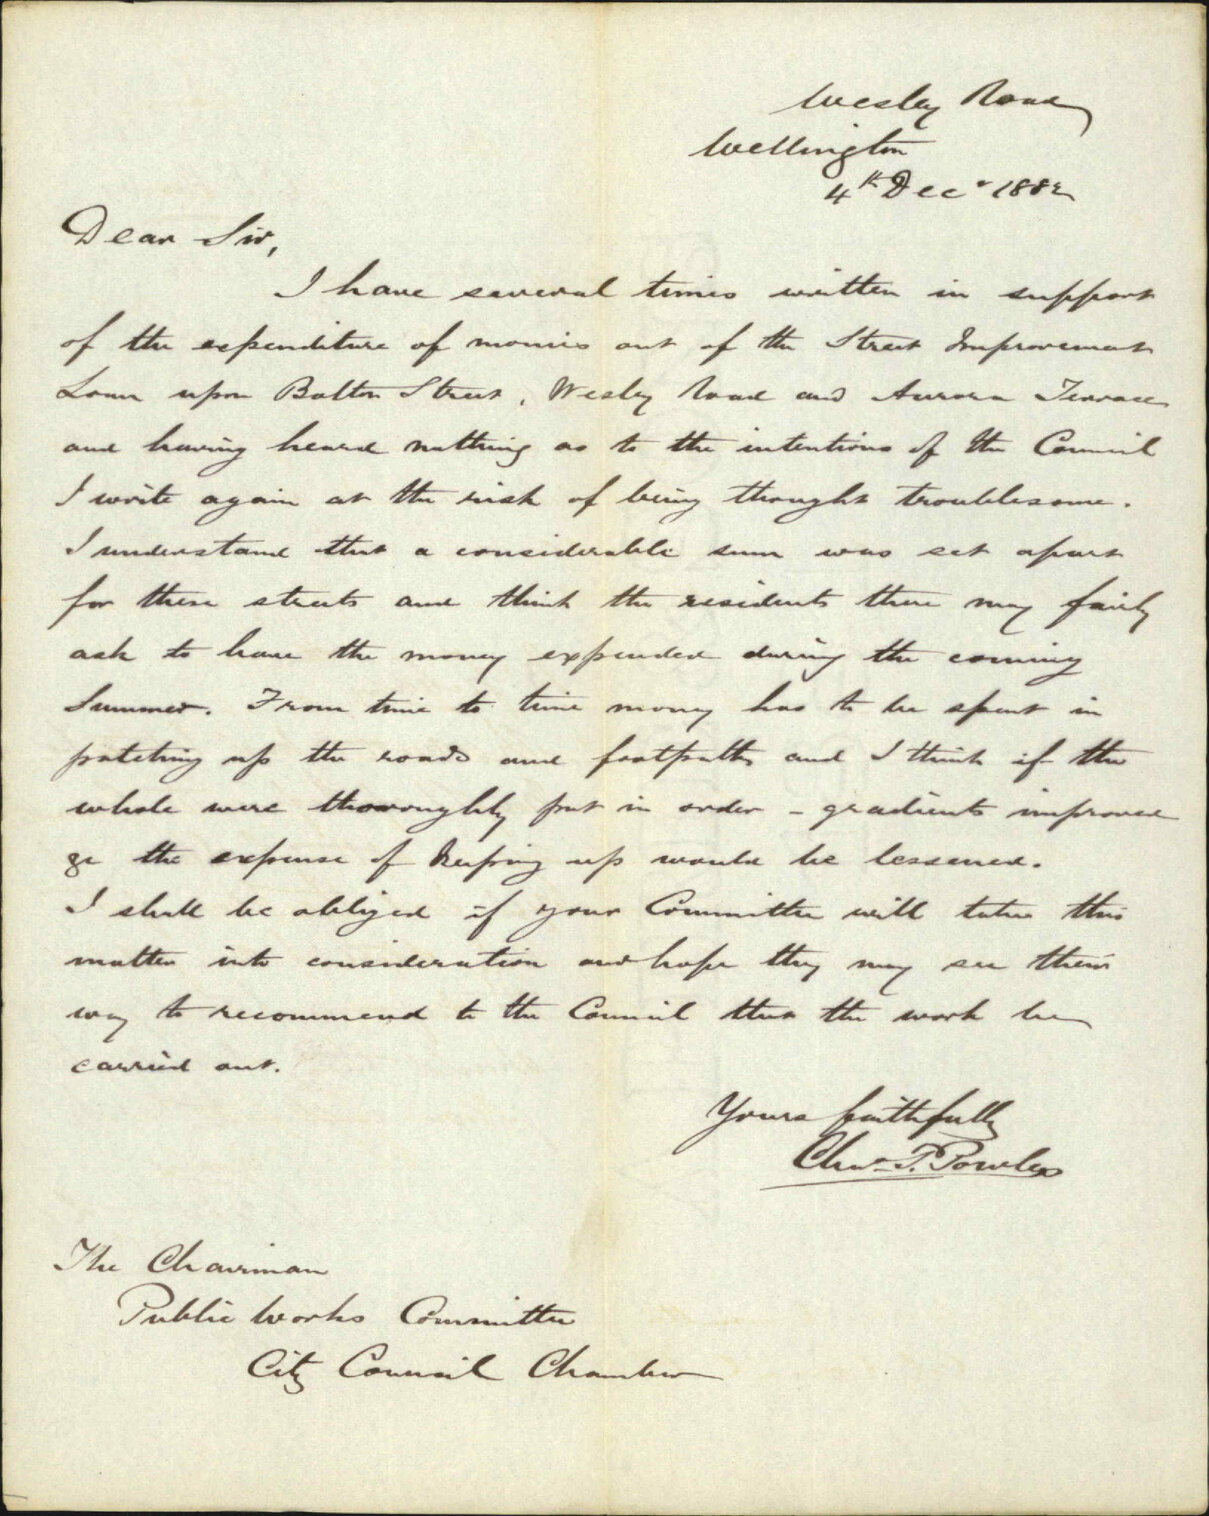 Wesley Road
Wellington
4th Decr 1882
Dear Sir,
I have several times written in support
of the expenditure of monies out of the Street Improvement
Loan upon Bolton Street, Wesley Road and Aurora Terrace
and having heard nothing as to the intentions of the Council
I write again at the risk of being thought troublesome.
I understand that a considerable sum was set apart
for these streets and think the residents there may fairly
ask to have the money expended during the coming
Summer. From time to time money has to be spent in
patching up the roads and footpaths and I think if the
whole were thoroughly put in order - gradients improved
&c the expense of keeping up would be lessened.
I shall be obliged if your Committee will take this
matter into consideration and hope they may see their
way to recommend to the Council that the work be
carried out.
Yours faithfully
Chas. P. Powles
The Chairman
Public Works Committee
City Council Chamber